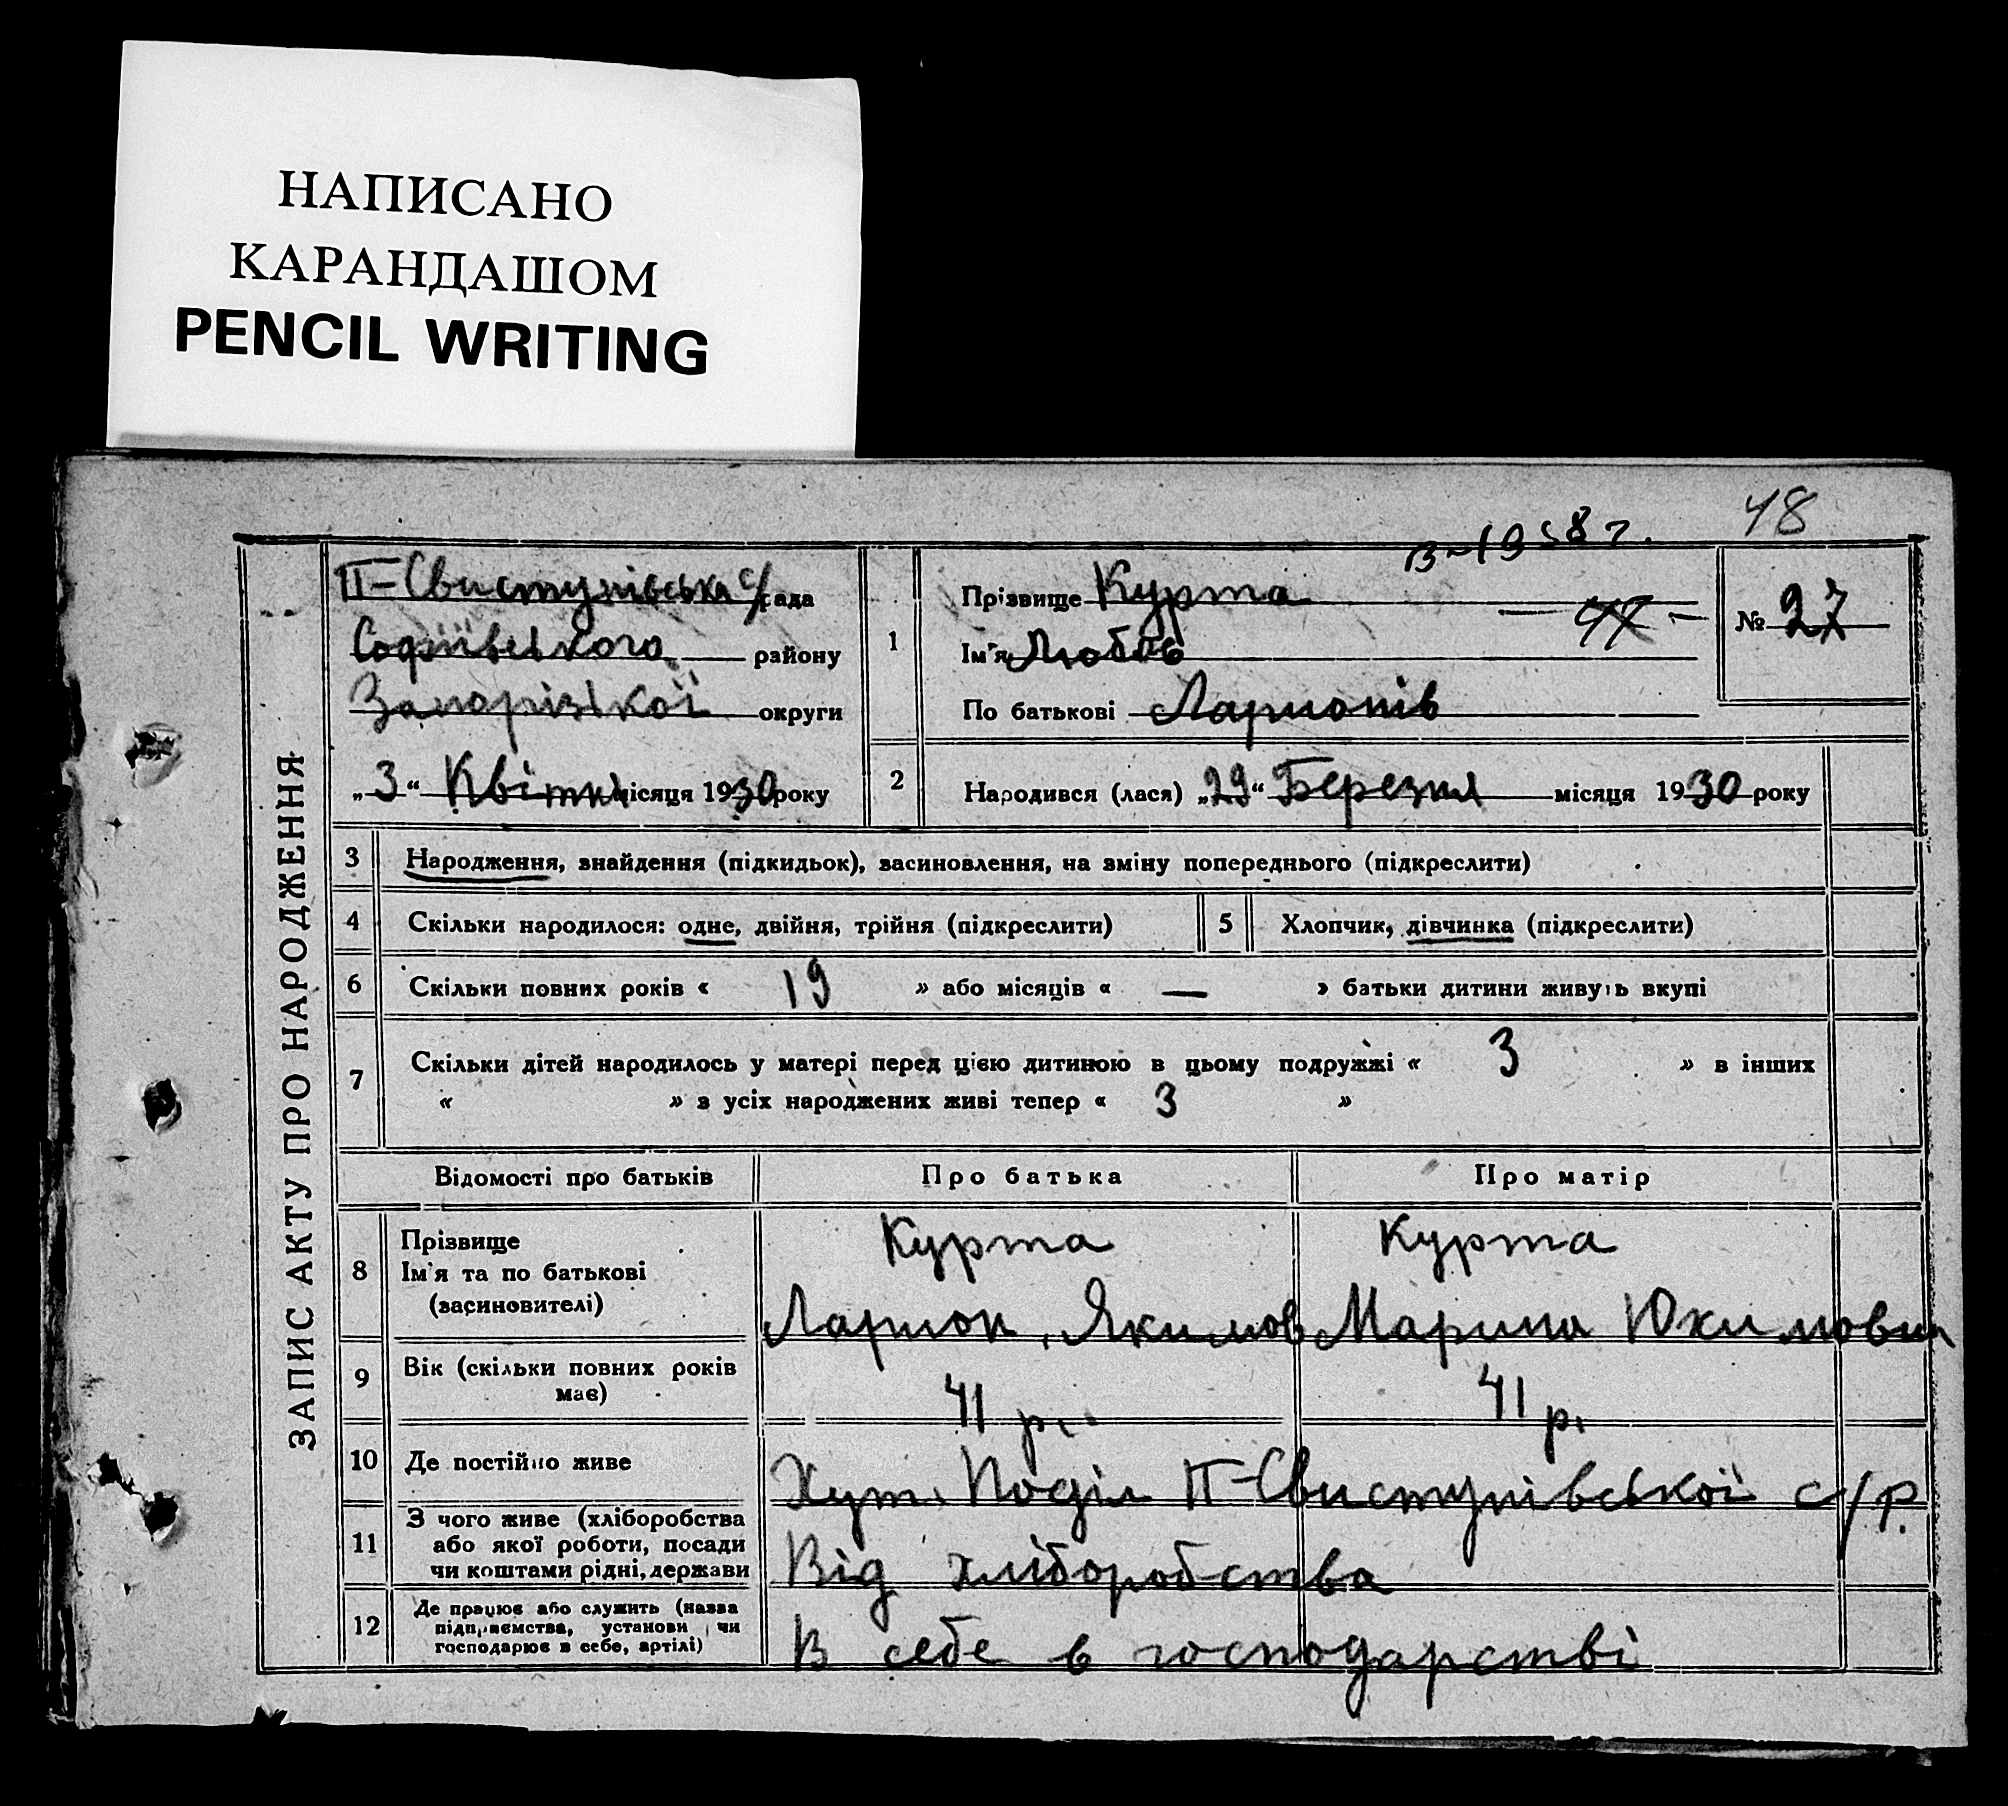 НАПИСАНО
КАРАНДАШОМ
PENCIL WRITING
48
В-1958 г.
ЗАПИС АКТУ ПРО НАРОДЖЕННЯ
П-Свистунівська с/рада
Софіївського району
Запорізької округи
„3“ Квітня місяця 1930 року
1
Прізвище Курта
47
Ім'я Любов
По батькові Ларионів
№ 27
2
Народився (лася) „29“ Березня місяця 1930 року
3 Народження, знайдення (підкидьок), засиновлення, на зміну попереднього (підкреслити)
4 Скільки народилося: одне, двійня, трійня (підкреслити)
5 Хлопчик, дівчинка (підкреслити)
6 Скільки повних років « 19 » або місяців « — » батьки дитини живуть вкупі
7 Скільки дітей народилось у матері перед цією дитиною в цьому подружжі « 3 » в інших
« » з усіх народжених живі тепер « 3 »
Відомості про батьків Про батька Про матір
8 Прізвище
Ім'я та по батькові
(засиновителі)
Курта Курта
Ларион Якимов Марина Юхимовна
9 Вік (скільки повних років
має)
41 р. 41 р.
10 Де постійно живе
Хут. Поділ П-Свистунівської с/р.
11 З чого живе (хліборобства
або якої роботи, посади
чи коштами рідні, держави
Від хліборобства
12 Де працює або служить (назва
підприємства, установи чи
господарює в себе, артілі)
В себе в господарстві